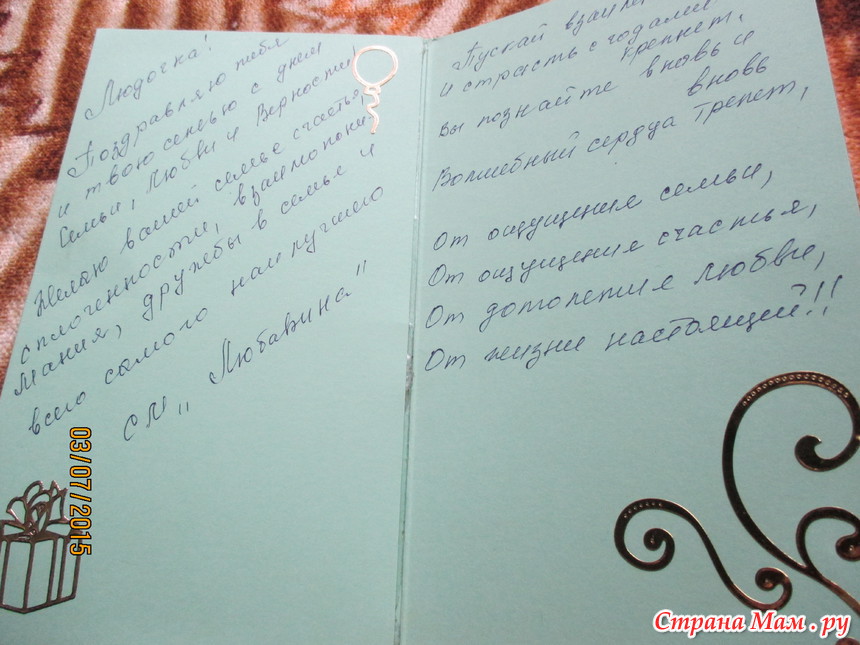 Людочка!
Поздравляю тебя
и твою семью с днем
Семьи, Любви и Верности!
Желаю вашей семье счастья,
сплоченности, взаимопони-
мания, дружбы в семье и
всего самого наилучшего
СМ „Любавина"
Пускай
и страсть с годами
крепнет,
вы познайте вновь и
вновь
Волшебный сердца трепет,
От ощущения семьи,
От ощущения счастья,
От долголетия любви,
От жизни настоящей!!
03/07/2015
Страна Мам.ру